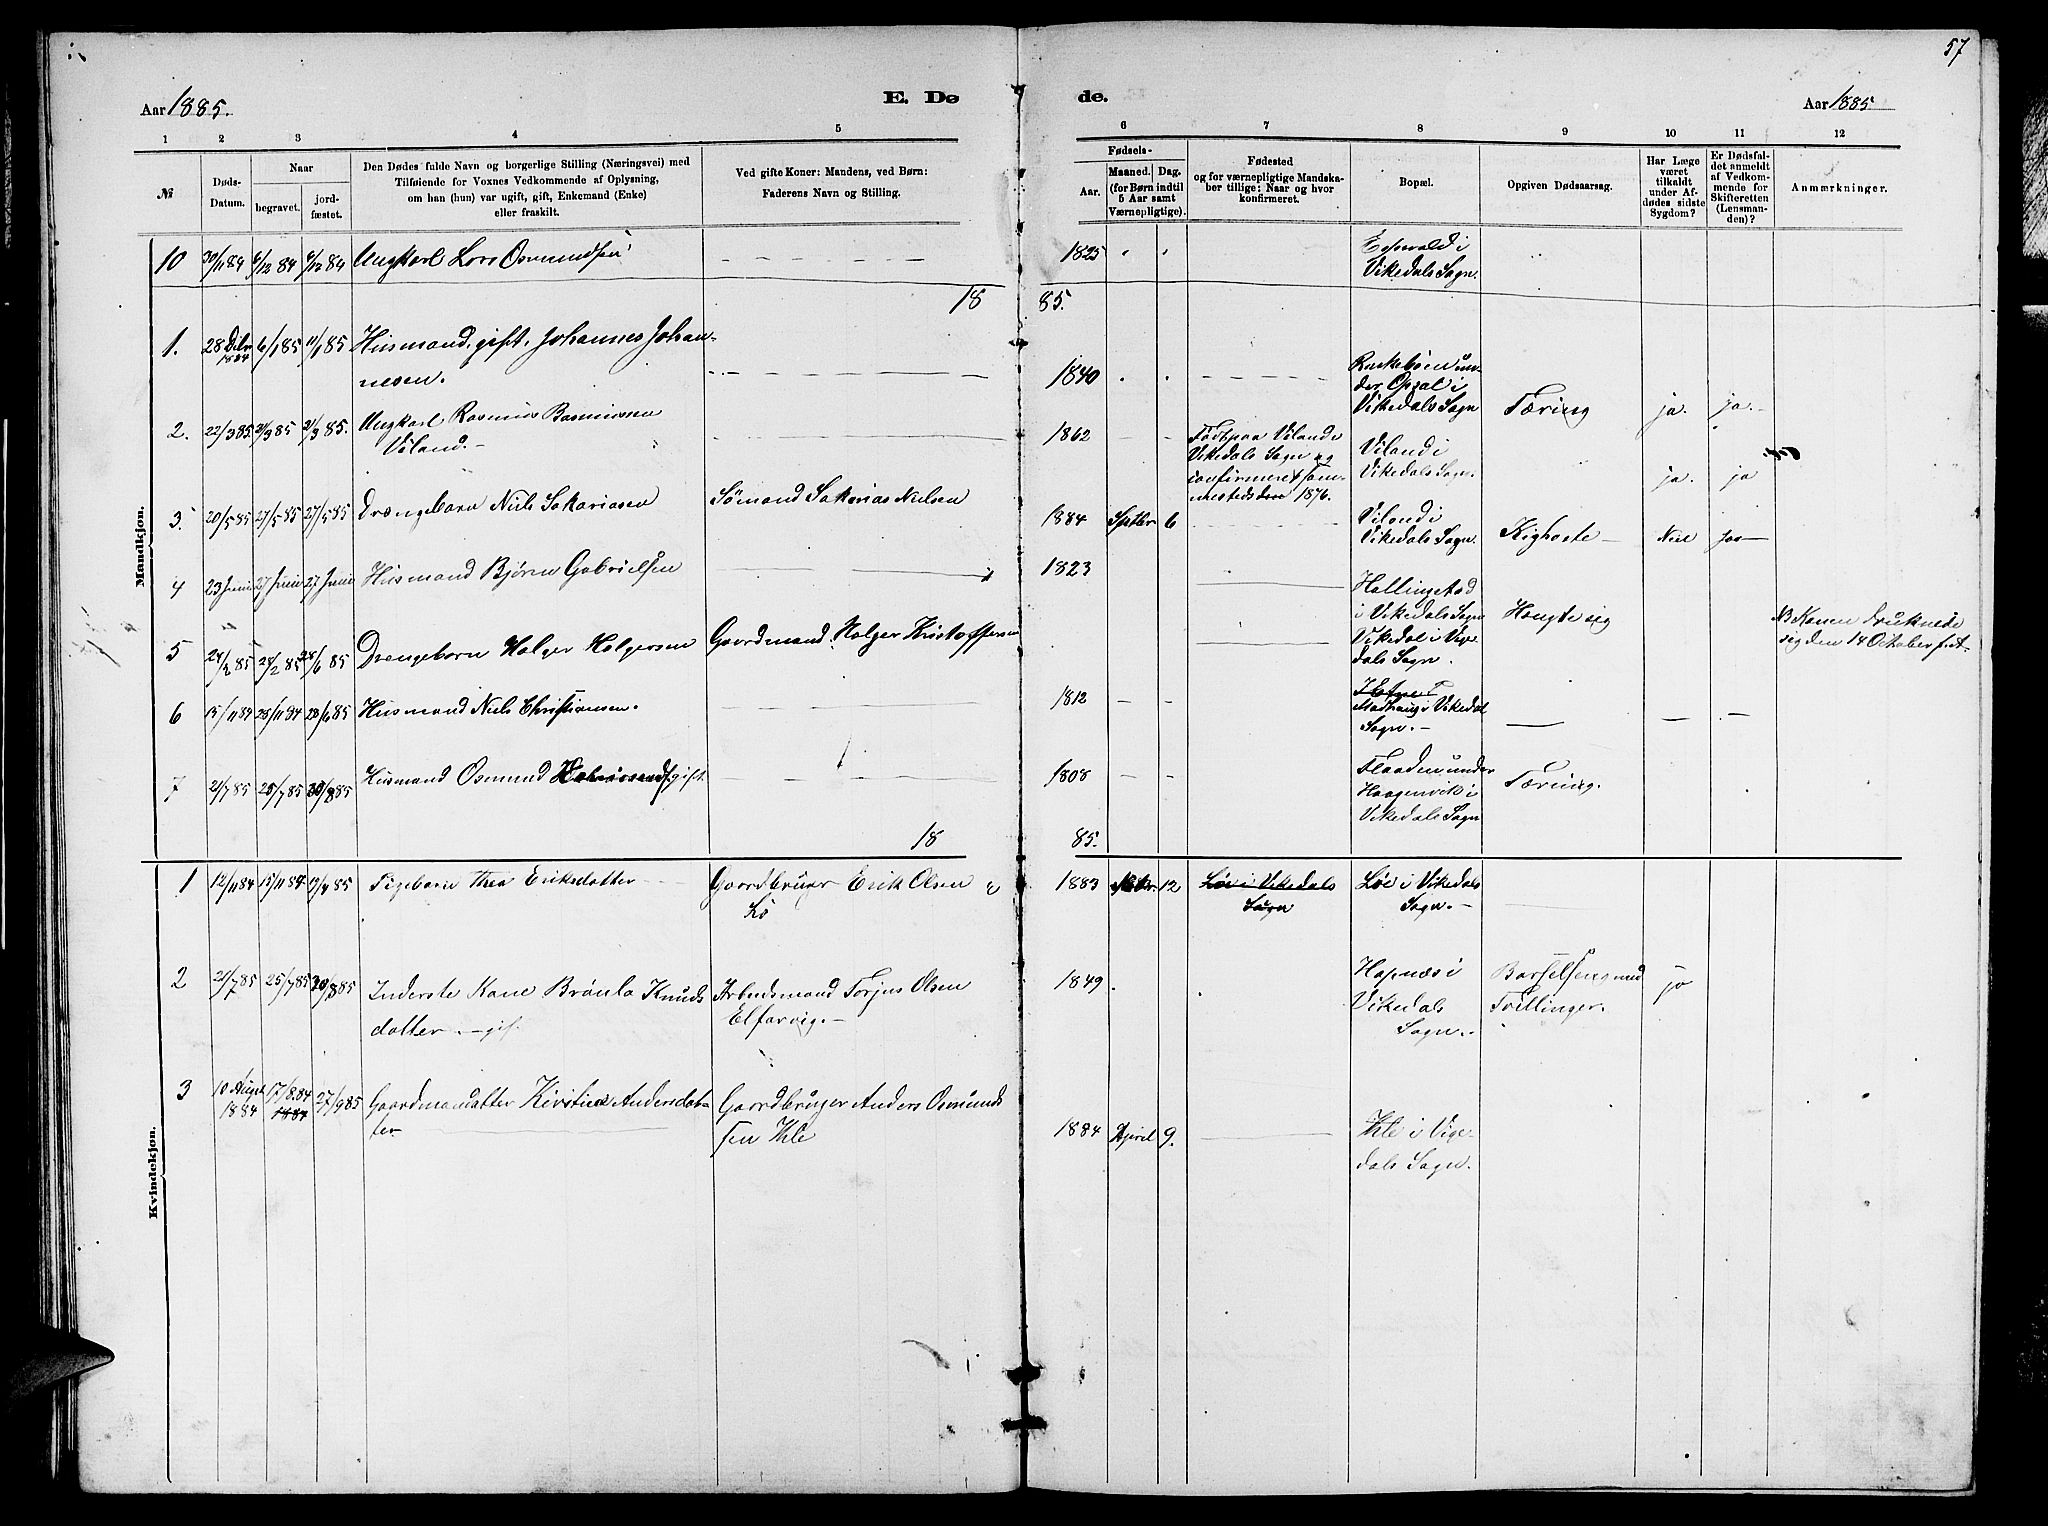 57
Aar 1885.
E. Dø
de.
Aar 1885
1 2 3 4 5
6 7 8 9 10 11 12
№
Døds-
Datum.
Naar
begravet.
jord-
fæstet.
Den Dødes fulde Navn og borgerlige Stilling (Næringsvei) med
Tilføiende for Voxnes Vedkommende af Oplysning,
om han (hun) var ugift, gift, Enkemand (Enke)
eller fraskilt.
Ved gifte Koner: Mandens, ved Børn:
Faderens Navn og Stilling.
Fødsels-
Aar.
Maaned. Dag.
(for Børn indtil
5 Aar samt
Værnepligtige).
Fødested
og for værnepligtige Mandska-
ber tillige: Naar og hvor
konfirmeret.
Bopæl.
Opgiven Dødsaarsag.
Har Læge
været
tilkaldt
under Af-
dødes sidste
Sygdom?
Er Dødsfal-
det anmeldt
af Vedkom-
mende for
Skifteretten
(Lensman-
den)?
Anmærkninger.
Mandkjøn.
10 30/11 84 6/12 84 6/12 84 Ungkarl Lars Osmundsen
1825
Vikedals Sogn.
18
85.
1. 28 Dcbr 1884 6/1 85 11/1 85 Husmand, gift, Johannes Johan-
nesen.
1840
der Opsal i
Vikedals Sogn
Tæring ja. ja.
2. 22/3 85. 2/3 85. Ungkarl Rasmus Rasmussen
Vøland.
1862
Født paa Vøland i
Vikedals Sogn og
confirmeret sam-
mesteds 1876.
Vøland i
Vikedals Sogn.
ja. ja
3. 20/5 85 27/5 85 27/5 85 Drengebarn Niels Sakariasen Sømand Sakarias Nielsen
1884 Septbr 6
Vøland i
Vikedals Sogn.
Kighoste Nei Ja
4 23 Juni 27 Juni 27 Juni Husmand Bjørn Gabrielsen
1823
Hallingstad
i Vikedals Sogn
Hængte sig
NB Konen druknede
sig den 14 October
5 24/2 85 28/6 85 Drengebarn Holger Holgersen Gaardmand Holger Kristoffersen
Vikedal i Vige-
dals Sogn.
6 15/11 84 28/11 84 28/6 85 Husmand Niels Christiansen.
1812
i Vikedal
Sogn.
7 21/7 85 25/7 85 30/8 85 Husmand Osmund gift.
1808
Flaaden under
Haagenvik i
Vikedals Sogn
Tæring.
18
85.
Kvindekjøn.
1 12/11 84 15/11 84 12/4 85 Pigebarn Thea Eriksdatter Gaardbruger Erik Olsen
Lø
1883 12
Løi i Vikedals
Sogn
Løi i Vikedals
Sogn.
2 21/7 85 25/7 85 30/8 85 Inderste Kone Brønla Knuds
datter gift
Arbeidsmand Torjus Olsen
Elfarvig.
1849
Hapnæs i
Vikedals
Sogn.
Barselseng med
Trillinger.
ja
3 10 August 1884 17/8 84 1884 27/9 85 Gaardmandatter Kirstine Andersdat-
ter
Gaardbruger Anders Osmunds
sen Ihle
1884 April 9.
Ihle i Vige-
dals Sogn.